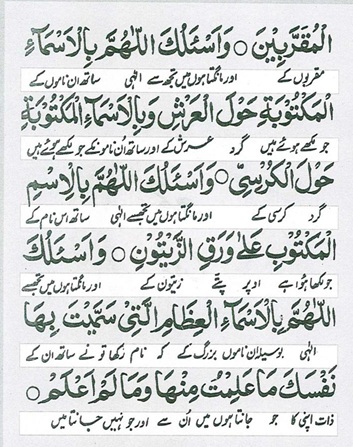 الْمُقَرَّبِيْنَ ○ وَاَسْئَلُكَ اللّٰهُمَّ بِالْاَسْمَآءِ
مقربوں کے اور مانگتا ہوں میں تجھ سے الٰہی ساتھ ان ناموں کے
الْمَكْتُوْبَةِ حَوْلَ الْعَرْشِ وَبِالْاَسْمَآءِ الْمَكْتُوْبَةِ
جو لکھے ہوئے ہیں گرد عرش کے اور ساتھ ان ناموں کے جو لکھے ہوئے ہیں
حَوْلَ الْكُرْسِيِّ ○ وَاَسْئَلُكَ اللّٰهُمَّ بِالْاِسْمِ
گرد کرسی کے اور مانگتا ہوں میں تجھسے الٰہی ساتھ اس نام کے
الْمَكْتُوْبِ عَلٰى وَرَقِ الزَّيْتُوْنِ ○ وَاَسْئَلُكَ
جو لکھا ہوا ہے اوپر پتے زیتون کے اور مانگتا ہوں میں تجھسے
اللّٰهُمَّ بِالْاَسْمَآءِ الْعِظَامِ الَّتِيْ سَمَّيْتَ بِهَا
الٰہی بوسیلہ ان ناموں بزرگ کے کہ نام رکھا تو نے ساتھ ان کے
نَفْسَكَ مَا عَلِمْتُ مِنْهَا وَمَا لَمْ اَعْلَمْ ○
ذات اپنی کا جو جانتا ہوں میں اُن سے اور جو نہیں جانتا میں